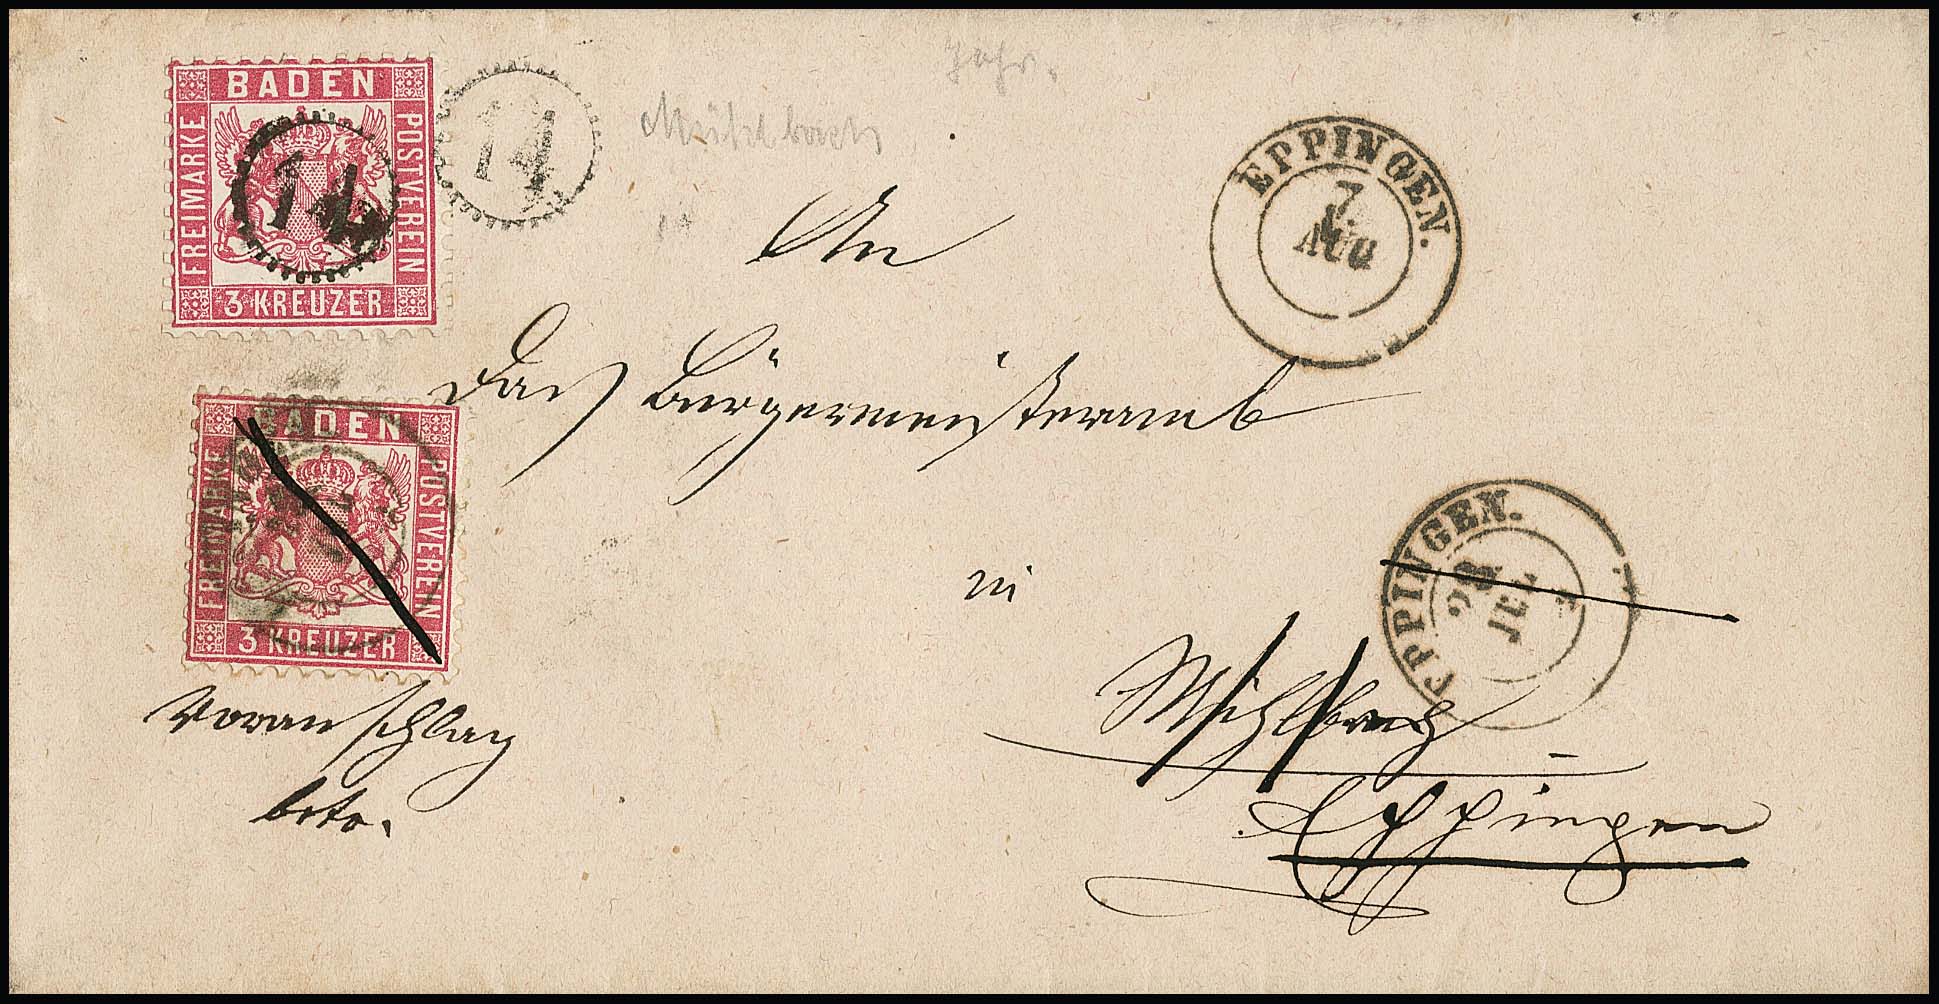 BADEN
FREIMARKE
POSTVEREIN
3 KREUZER
14
14
Mühlbach
EPPINGEN.
7
AUG
An
Das Bürgermeisteramt
in
Mühlbach
Eppingen
BADEN
FREIMARKE
POSTVEREIN
3 KREUZER
EPPINGEN.
28
JUL
Voranschlag
betr.